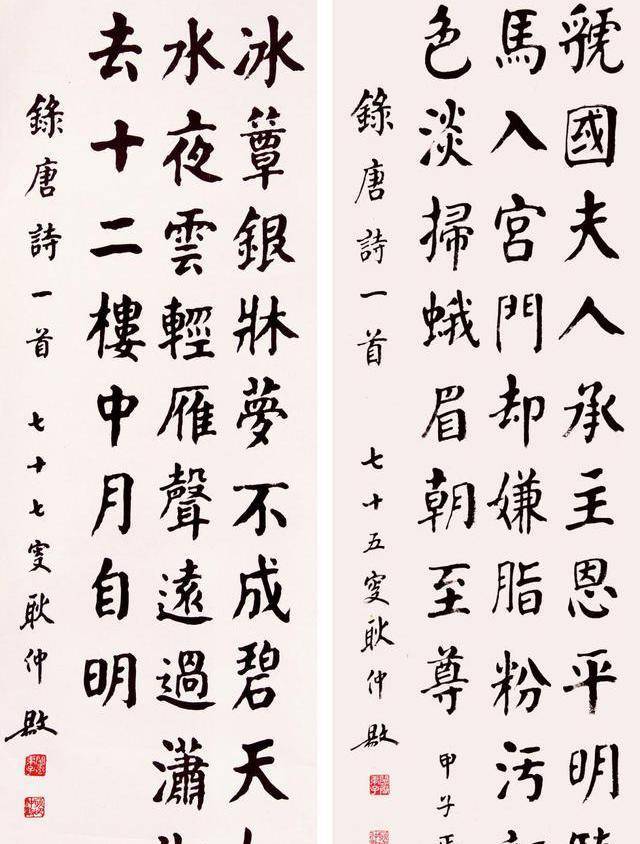 虢國夫人承主恩平明
馬入宮門却嫌脂粉污
色淡掃蛾眉朝至尊 甲子
錄唐詩一首 七十五叟耿仲敭
冰簟銀牀夢不成碧天
水夜雲輕雁聲遠過瀟
去十二樓中月自明
錄唐詩一首 七十七叟耿仲敭